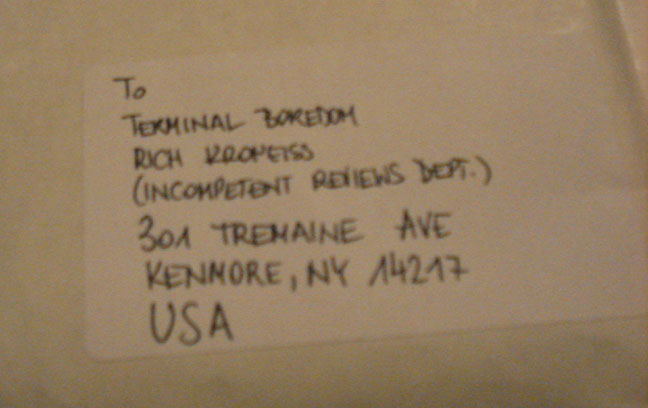 To
TERMINAL BOREDOM
RICH KRONEISS
(INCOMPETENT REVIEWS DEPT.)
301 TREMAINE AVE
KENMORE, NY 14217
USA